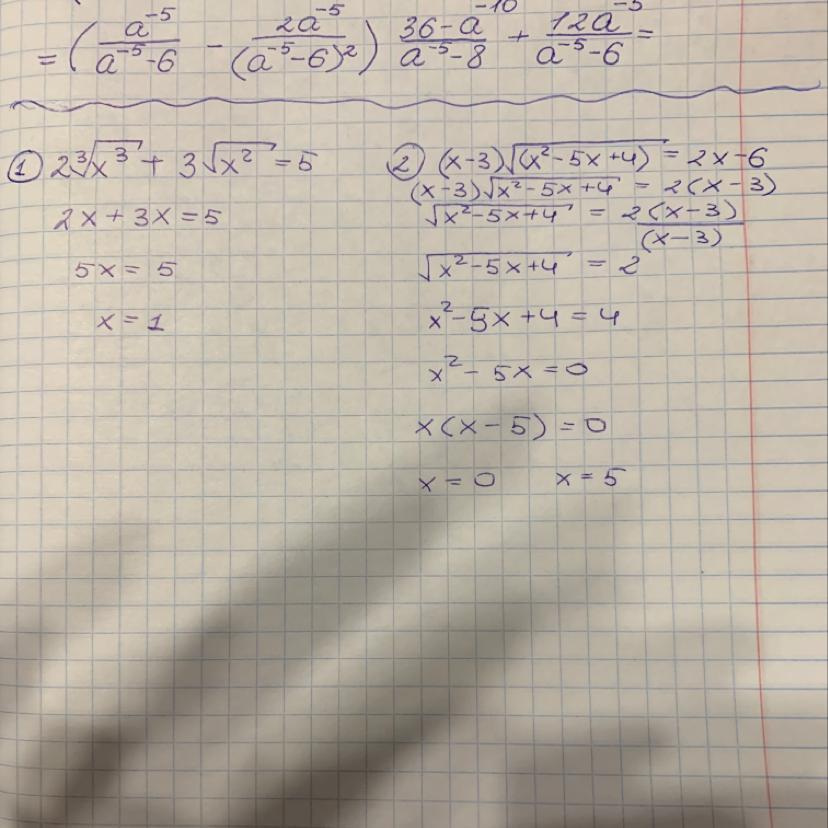 = (a⁻⁵/(a⁻⁵-6) - 2a⁻⁵/(a⁻⁵-6)²) (36-a⁻¹⁰)/(a⁻⁵-8) + 12a⁻⁵/(a⁻⁵-6) =
① 2∛x³ + 3√x² = 5
2x + 3x = 5
5x = 5
x = 1
② (x-3)√(x²-5x+4) = 2x-6
(x-3)√x²-5x+4 = 2(x-3)
√x²-5x+4 = 2(x-3)/(x-3)
√x²-5x+4 = 2
x²-5x+4 = 4
x²-5x=0
x(x-5)=0
x=0 x=5